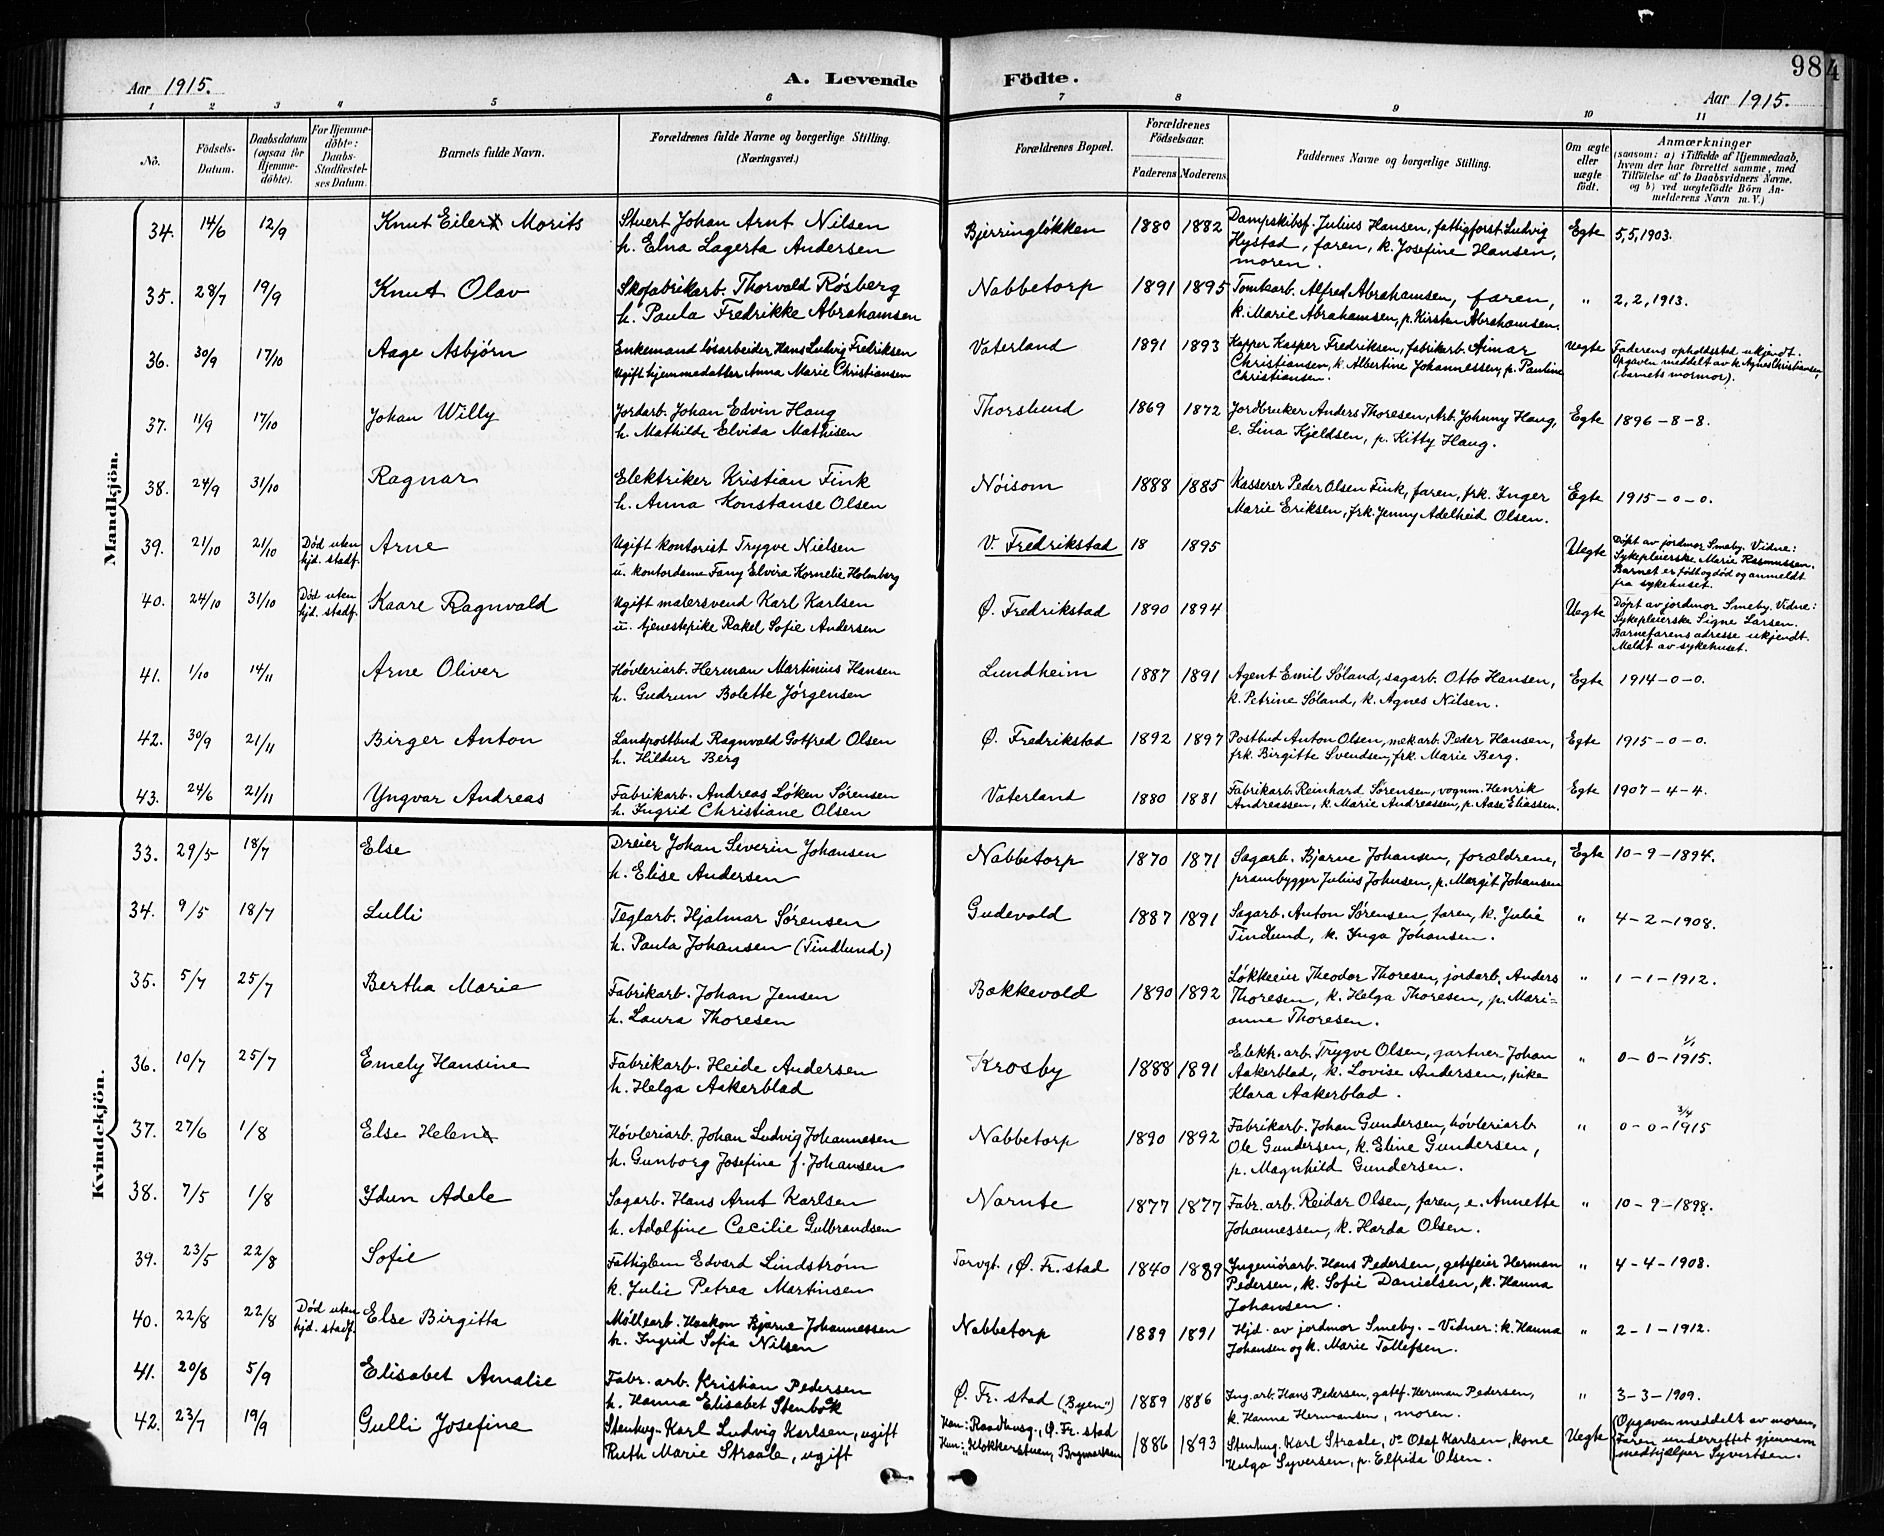 984
Aar 1915.
A. Levende Födte.
Aar 1915.
1 2 3 4 5 6 7 8 9 10 11
No.
Födsels-Datum.
Daabsdatum (ogsaa for Hjemme-döbte).
For Hjemme-döbte: Daabs-Stadfæstel-ses Datum.
Barnets fulde Navn.
Forældrenes fulde Navne og borgerlige Stilling. (Næringsvei.)
Forældrenes Bopæl.
Forældrenes Födselsaar.
Faderens Moderens
Faddernes Navne og borgerlige Stilling.
Om ægte eller uægte födt.
Anmærkninger
(saasom: a) i Tilfælde af Hjemmedaab, hvem der har forrettet samme, med Tilföielse af to Daabsvidners Navne. og b) ved uægtefödte Börn An-melderens Navn m. V.)
Mandkjön.
34. 14/6 12/9 Knut Eiler Morits
Stuert Johan Arnt Nilsen
h. Elna Lagerta Andersen
Bjerringløkken 1880 1882
Dampskibsf. Julius Hansen, fattigforst. Ludvig
Hystad, faren, k. Josefine Hansen,
moren.
Egte 5,5,1903.
35. 28/7 19/9 Knut Olav
Skofabrikarb. Thorvald Røsberg
h. Paula Fredrikke Abrahamsen
Nabbetorp 1891 1895
Tomtearb. Alfred Abrahamsen, faren,
k. Marie Abrahamsen, p. Kirsten Abrahamsen.
" 2,2,1913.
36. 30/9 17/10 Aage Asbjørn
Enkemand løsarbeider Hans Ludvig Fredriksen
Ugift hjemmedatter Anna Marie Christiansen
Vaterland 1891 1893
Kapper Kasper Fredriksen, fabrikarb. Aimar
Christiansen, k. Albertine Johannessen, p. Pauline
Christiansen.
Uegte Faderens opholdssted ukjendt.
Opgaven meddelt av k. Agnes Christiansen,
(barnets mormor).
37. 11/9 17/10 Johan Willy
Jordarb. Johan Edvin Haug
h. Mathilde Elvida Mathisen
Thorslund 1869 1872
Jordbruker Anders Thoresen, Arb. Johnny Haug,
e. Lina Kjeldsen, p. Kitty Haug.
Egte 1896-8-8.
38. 24/9 31/10 Ragnar
Elektriker Kristian Fink
h. Anna Konstanse Olsen
Nøisom 1888 1885
Kasserer Peder Olsen Fink, faren, frk. Inger
Marie Eriksen, frk. Jenny Adelheid Olsen.
Egte 1915-0-0.
39. 21/10 21/10 Død uten hjd. stadf. Arne
Ugift kontorist Trygve Nielsen
u. kontordame Fany Elvira Kornelie Holmberg
V. Fredrikstad 18 1895
Uegte Døpt av jordmor Smeby. Vidne:
Sykepleierske Marie Rasmussen.
Barnet er født og død og anmeldt
fra sykehuset.
40. 24/10 31/10 Død uten hjd. stadf. Kaare Ragnvald
Ugift malersvend Karl Karlsen
u. tjenestepike Rakel Sofie Andersen
Ø. Fredrikstad 1890 1894
Uegte Døpt av jordmor Smeby. Vidne:
Sykepleierske Signe Larsen.
Barnefarens adresse ukjendt.
Meldt av sykehuset.
41. 1/10 14/11 Arne Oliver
Høvleriarb. Herman Martinius Hansen
h. Gudrun Bolette Jørgensen
Lundheim 1887 1891
Agent Emil Søland, sagarb. Otto Hansen,
k. Petrine Søland, k. Agnes Nilsen.
Egte 1914-0-0.
42. 30/9 21/11 Birger Anton
Landpostbud Ragnvald Gotfred Olsen
h. Hildur Berg
Ø. Fredrikstad 1892 1897
Postbud Anton Olsen, mek.arb. Peder Hansen,
frk. Birgitte Svendsen, frk. Marie Berg.
Egte 1915-0-0.
43. 24/6 21/11 Yngvar Andreas
Fabrikarb. Andreas Løken Sørensen
h. Ingrid Christiane Olsen
Vaterland 1880 1881
Fabrikarb. Reinhard Sørensen, vognm. Henrik
Andreassen, k. Marie Andreassen, p. Aase Eliassen.
Egte 1907-4-4.
Kvindekjön.
33. 29/5 18/7 Else
Dreier Johan Severin Johansen
h. Elise Andersen
Nabbetorp 1870 1871
Sagarb. Bjarne Johansen, forældrene,
prambygger Julius Johnsen, p. Margit Johansen
Egte 10-9-1894.
34. 9/5 18/7 Lulli
Teglarb. Hjalmar Sørensen
h. Paula Johansen (Tindlund)
Gudevold 1887 1891
Sagarb. Anton Sørensen, faren, k. Julie
Tindlund, k. Inga Johansen.
" 4-2-1908.
35. 5/7 25/7 Bertha Marie
Fabrikarb. Johan Jensen
h. Laura Thoresen
Bakkevold 1890 1892
Løkkeeier Theodor Thoresen, jordarb. Anders
Thoresen, k. Helga Thoresen, p. Mari=
anne Thoresen.
" 1-1-1912.
36. 10/7 25/7 Emely Hansine
Fabrikarb. Heide Andersen
h. Helga Aakerblad
Krosby 1888 1891
Elektr. arb. Trygve Olsen, gartner Johan
Aakerblad, k. Lovise Andersen, pike
Klara Aakerblad.
" 0-0-1/1 1915.
37. 27/6 1/8 Else Helen
Høvleriarb. Johan Ludvig Johannesen
h. Gunborg Josefine f. Johansen
Nabbetorp 1890 1892
Fabrikarb. Johan Gundersen, høvleriarb.
Ole Gundersen, k. Eline Gundersen,
p. Magnhild Gundersen.
" 0-0-3/4 1915
38. 7/5 1/8 Idun Adele
Sagarb. Hans Arnt Karlsen
h. Adolfine Cecilie Gulbrandsen
Narnte 1877 1877
Fabr. arb. Reidar Olsen, faren, e. Annette
Johannessen, k. Harda Olsen.
" 10-9-1898.
39. 23/5 22/8 Sofie
Fattiglem Edvard Lindstrøm
k. Julie Petrea Martinsen
Torvgt, Ø. Fr.stad 1840 1889
Ingeniørarb. Hans Pedersen, gatefeier Herman
Pedersen, k. Sofie Danielsen, k. Hanna
Johansen.
" 4-4-1908.
40. 22/8 22/8 Død uten hjd. stadf. Else Birgitta
Møllearb. Haakon Bjarne Johannessen
h. Ingrid Sofia Nilsen
Nabbetorp 1889 1891
Hjd. av jordmor Smeby. - Vidner: k. Hanna
Johansen og k. Marie Tollefsen.
" 2-1-1912.
41. 20/8 5/9 Elisabet Amalie
Fabr. arb. Kristian Pedersen
h. Hanna Elisabet Stenbøk
Ø. Fr. stad ("Byen") 1889 1886
Ing.arb. Hans Petersen, gatef. Herman Pedersen,
k. Hanna Hermansen, moren.
" 3-3-1909.
42. 23/7 19/9 Gulli Josefine
Stenhug. Karl Ludvig Karlsen, ugift
Ruth Marie Straale, ugift
Han: Raadhusg., Ø. Fr. stad
Hun: Klokkerstuen,
1886 1893
Stenhug. Karl Straale, do Olaf Karlsen, kone
Helga Syversen, p. Elfrida Olsen.
Uegte (Opgaven meddelt av moren,
Faren underrettet gjennem
medhjælper Syvertsen.